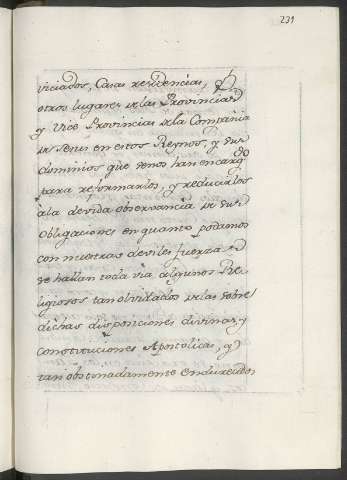 231
viciados, Casas residencias, y
otros lugares de las Provincias
y Vice Provincias de la Compañia
de Jesus en estos Reynos, y sus
dominios que se nos han encargdo
para reformarlos, y reducirlos
a la devida observancia de sus
obligaciones en quanto podamos
con nuestras deviles fuerzas
se hallan toda via algunos Re-
ligiosos tan olvidados de las sobre
dichas disposiciones divinas, y
Constituciones Apostolicas, y
tan obstinadamente endurecidos